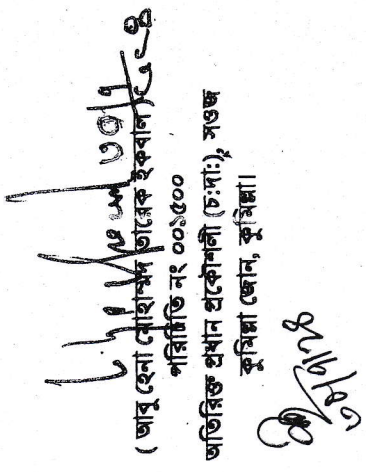 ৩০/৭
(আবু হেনা মোহাম্মদ তারেক ইকবাল)
পরিচিতি নং ০০১৫০০
অতিরিক্ত প্রধান প্রকৌশলী (চ:দা:), সওজ
কুমিল্লা জোন, কুমিল্লা।